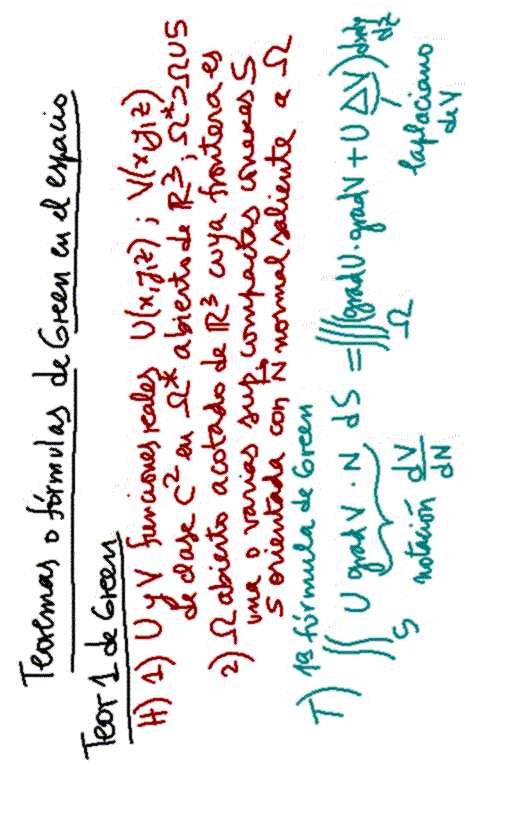 Teoremas o fórmulas de Green en el espacio
Teor 1 de Green
H) 1) U y V funciones reales U(x,y,z) ; V(x,y,z)
de clase C² en Ω* abierto de ℝ³, Ω* ⊃ Ω∪S
2) Ω abierto acotado de ℝ³ cuya frontera es
una o varias sup compactas conexas S
S orientada con N normal saliente a Ω
1ª fórmula de Green
T) ∬_S U gradV · N dS = ∭_Ω (gradU · gradV + U ΔV) dxdydz
notación dV/dN
laplaciano
de V